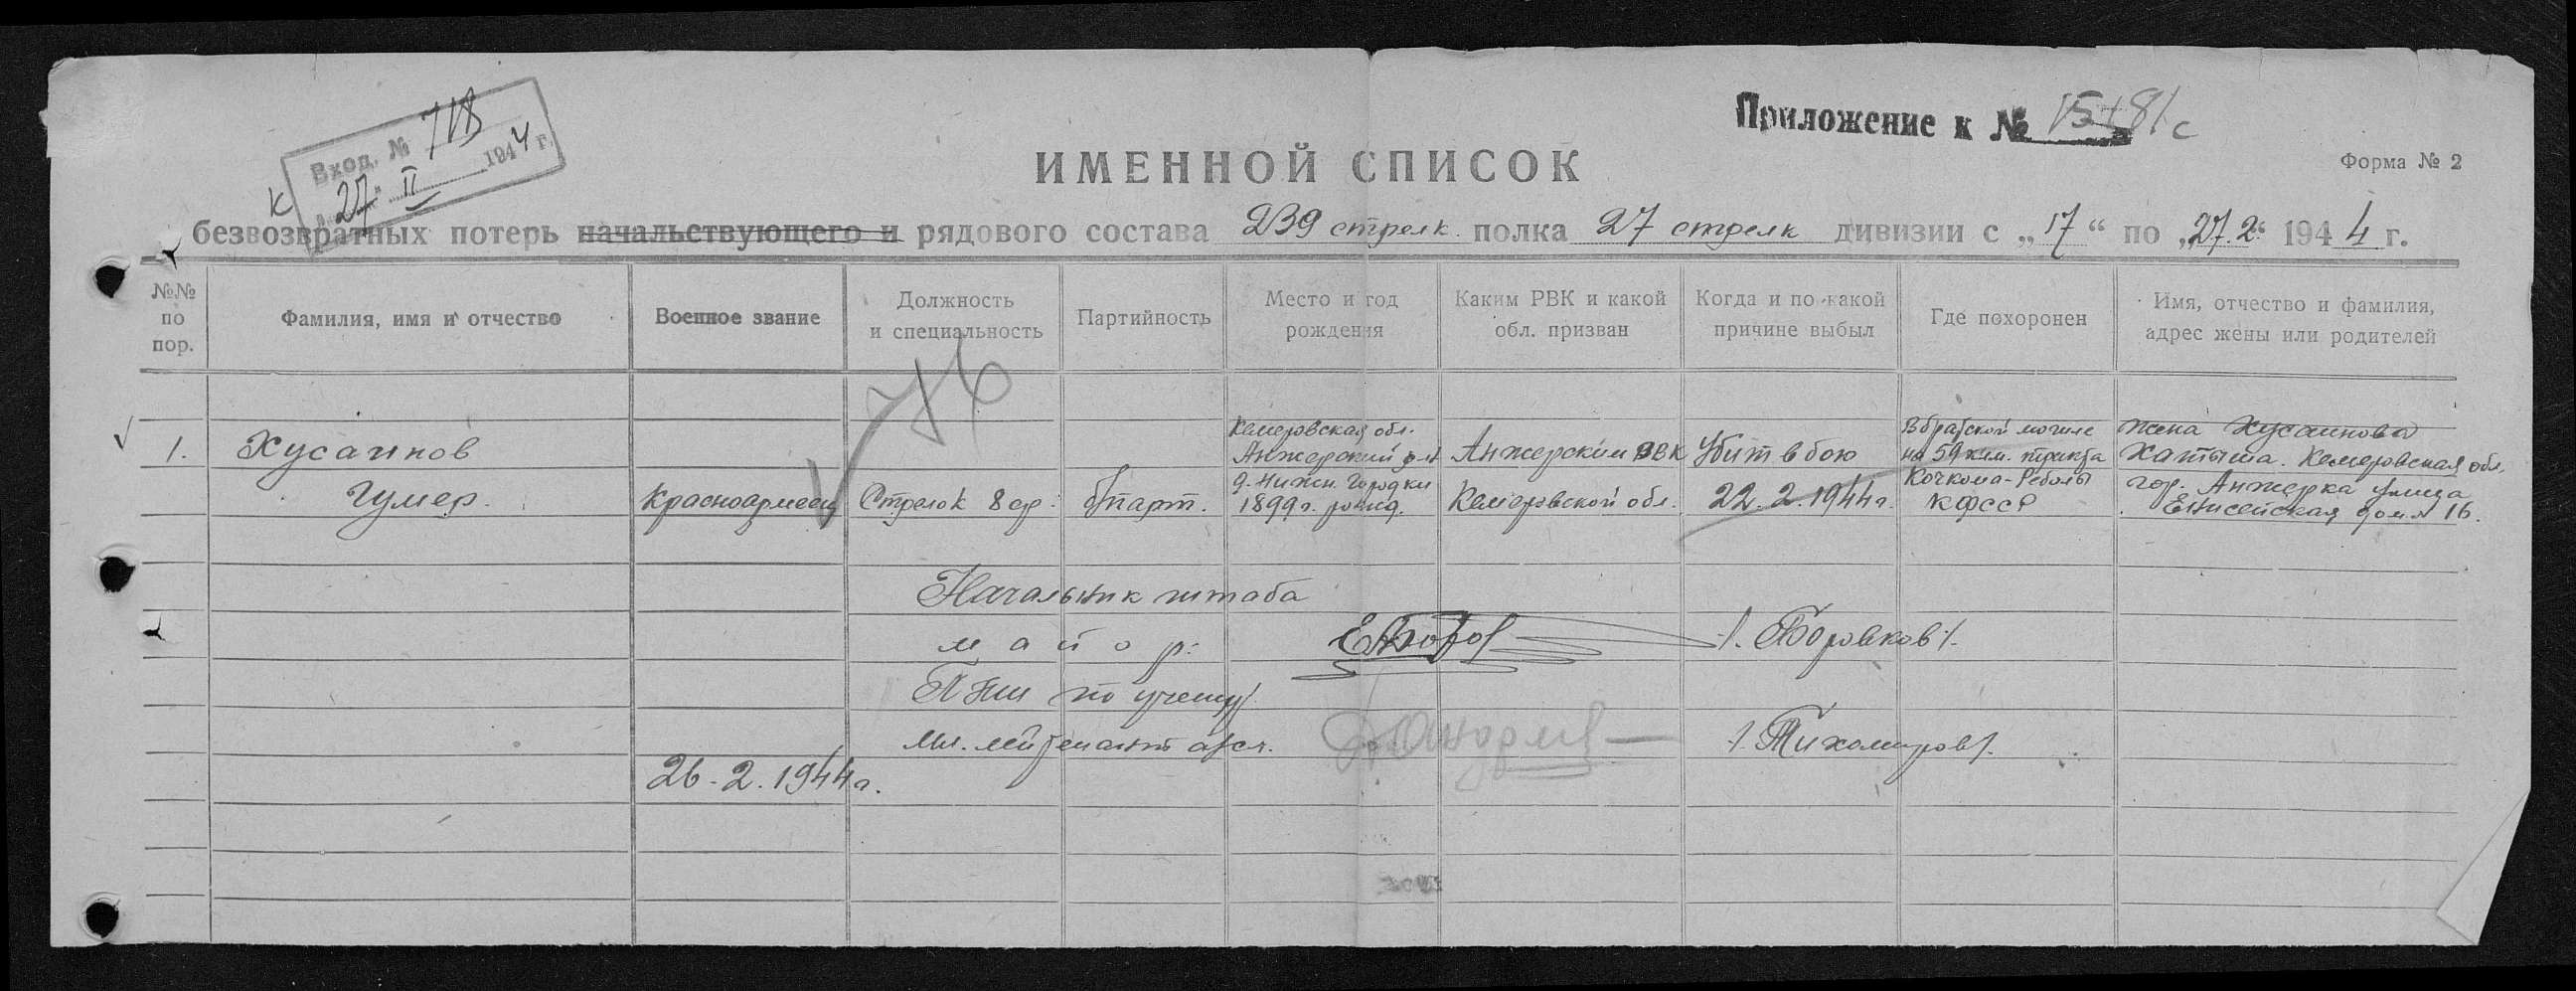 Вход. № 718
К "27" II 1944 г.
Приложение к № 15481с
ИМЕННОЙ СПИСОК
Форма № 2
безвозвратных потерь начальствующего и рядового состава 239 стрелк. полка 27 стрелк дивизии с „17“ по „27.2“ 1944 г.
№№ по пор.
Фамилия, имя и отчество
Военное звание
Должность и специальность
Партийность
Место и год рождения
Каким РВК и какой обл. призван
Когда и по какой причине выбыл
Где похоронен
Имя, отчество и фамилия, адрес жены или родителей
76
1.
Хусаинов
Гумер.
Красноармеец
Стрелок 8 ср.
б/парт.
Кемеровская обл.
Анжерский р-н
д. Нижн. Городки
1899 г. рожд.
Анжерским РВК
Кемеровской обл.
Убит в бою
22.2.1944 г.
В братской могиле
на 59 км. тракта
Кочкома-Реболы
КФССР
жена Хусаинова
Хатыма. Кемеровская обл.
гор. Анжерка улица
Енисейская дом № 16.
Начальник штаба
майор:
/. Боровков /.
ПНШ по учету
мл. лейтенант а/сл.
/. Тихомиров /.
26-2.1944 г.